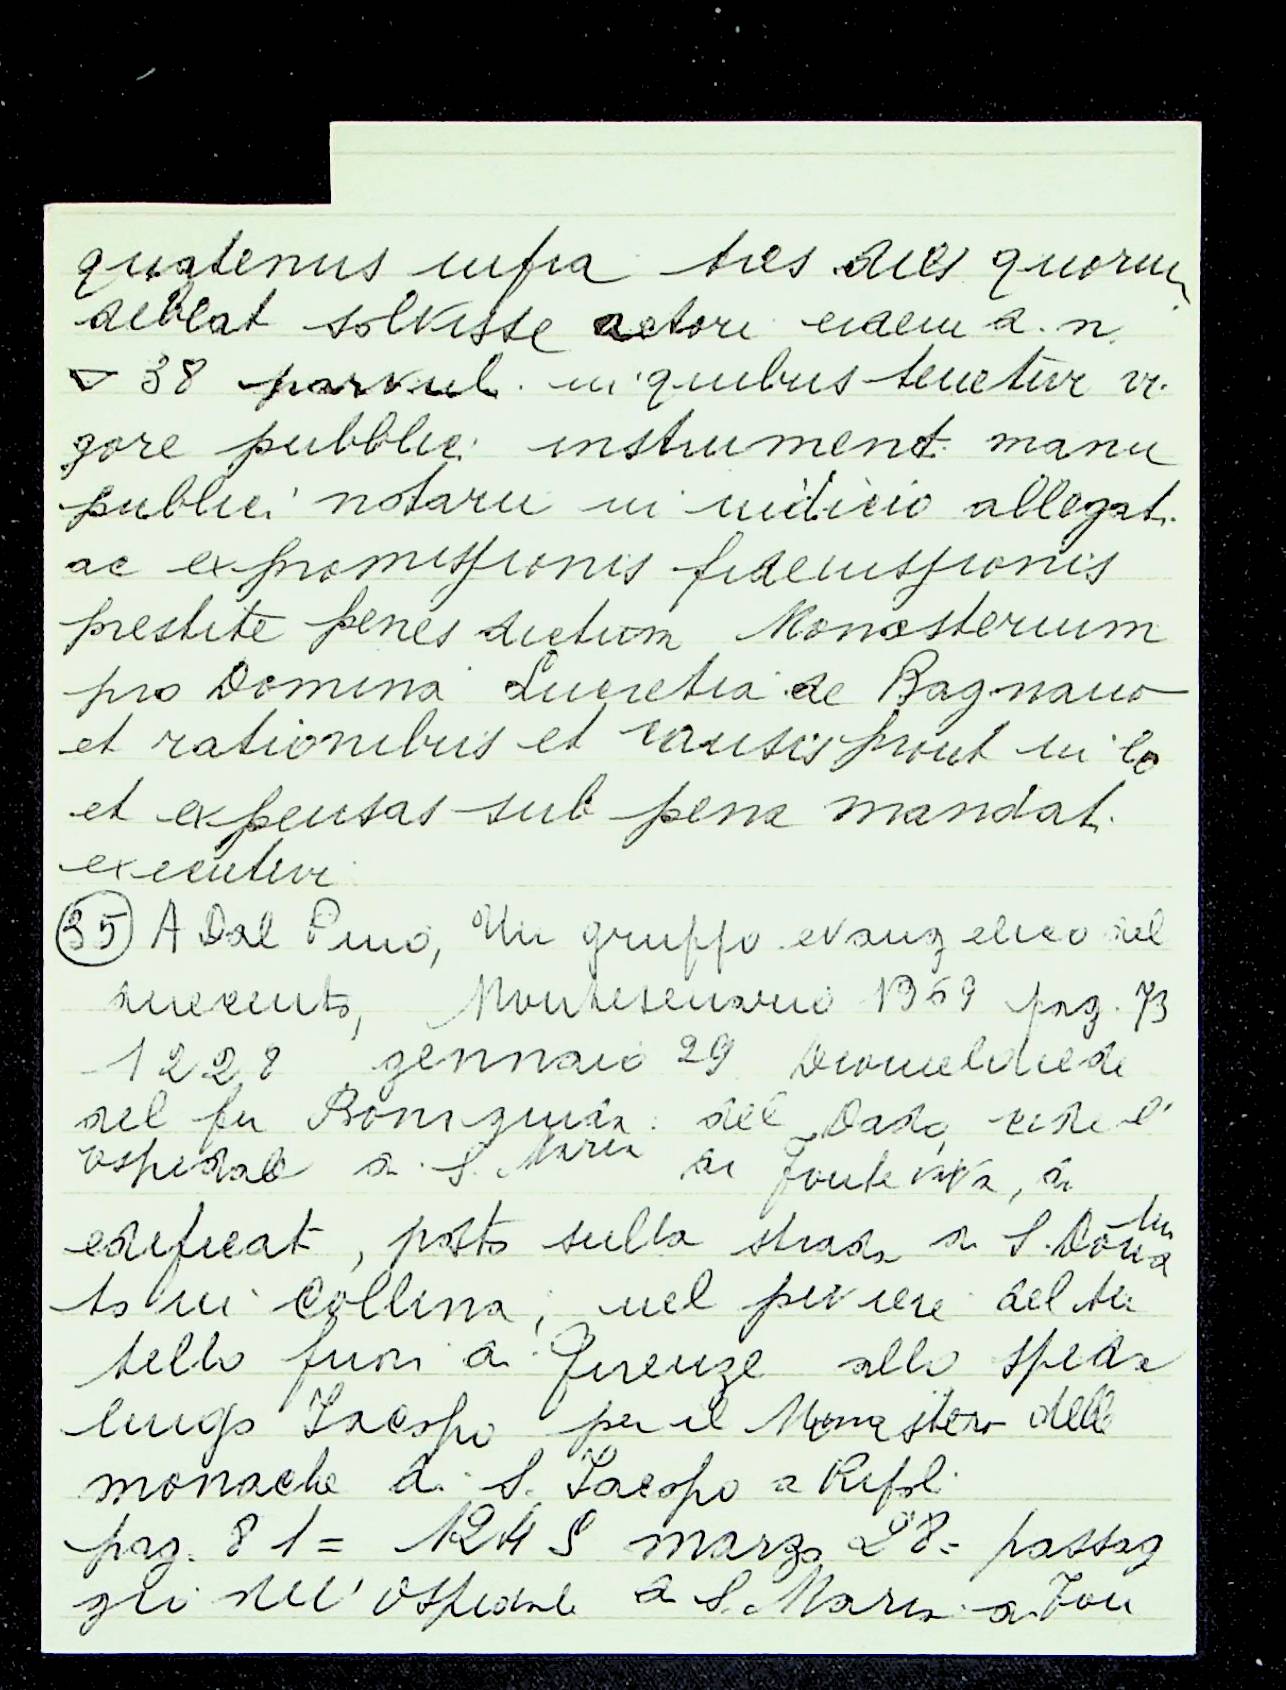 quatenus infra tres dies quorum
debeat solvisse actori eidem d. n.
▽ 38 parvul. in quibus tenetur vi-
gore pubblici instrument. manu
publici notarii in iudicio allegat.
ac expromissionis fideiussionis
prestite penes dictum Monasterium
pro Domina Lucretia de Bagnano
et rationibus et causis prout in eo
et expensas sub pena mandat.
executivi
(35) A Dal Pino, Un gruppo evangelico del
duecento, Montesenario 1969 pag. 73
1228 gennaio 29 Diomeldiede
del fu Boniguida del Dado, cede l'
ospedale di S. Maria di Fonteviva, di
edificat, posto sulla strada di S. Dona
to in Collina, nel piviere del
tello fuori di Firenze allo speda
lingo Iacopo per il Monastero delle
monache di S. Iacopo a Ripoli
pag. 81 = 1245 marzo 28 = passag
gio dell' ospedale di S. Maria a Fon